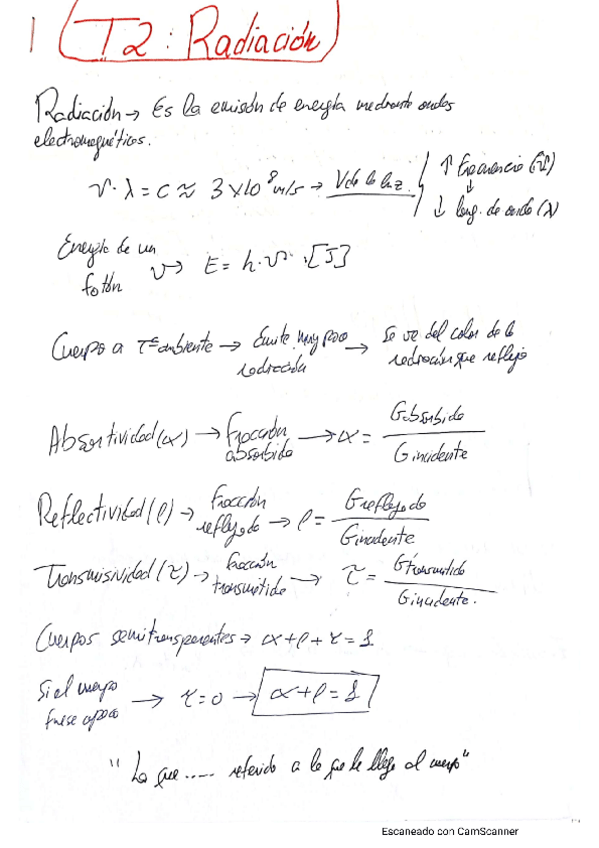 1 T2: Radiación
Radiación → Es la emisón de energía mediante ondas
electromagnéticas.
ν · λ = c ≈ 3 x 10⁸ m/s → V de la luz. ↑ Frecuencia (ν)
↓
↓ long. de onda (λ)
Energía de un
fotón → E = h·ν · [J]
Cuerpo a Tª ambiente → Emite muy poca radiación → Se ve del color de la
radiación que refleja
Absortividad (α) → Fracción absorbida → α = Gabsorbida / Gincidente
Reflectividad (ρ) → Fracción reflejada → ρ = Greflejada / Gincidente
Transmisividad (τ) → fracción transmitida → τ = Gtransmitida / Gincidente.
Cuerpos semitransparentes → α + ρ + τ = 1
Si el cuerpo
fuese opaco → τ = 0 → α + ρ = 1
"Lo que ..... referido a lo que le llega al cuerpo"
Escaneado con CamScanner